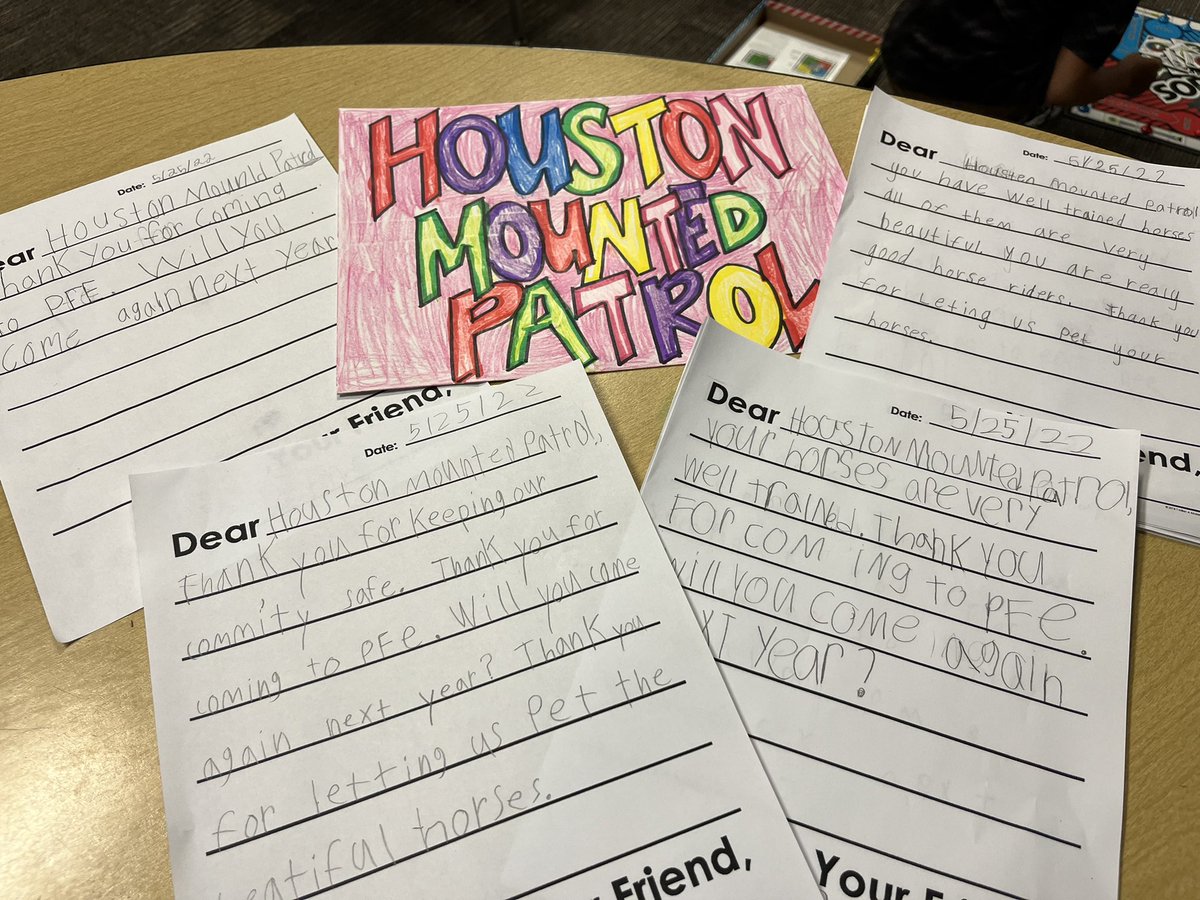 HOUSTON
MOUNTED
PATROL
Date: 5/25/22
ear Houston Mounld Patrol
hank you ffor Coming
to PFE Will You
Come again next year
Your Friend,
Date: 5/25/22
Dear Houston mounted Patrol
you have well trained horses
all of them are very
beautiful you are realy
good horse riders. Thank you
for Leting us pet your
horses.
end,
Date: 5/25/22
Dear Houston mounted Patrol,
Thank you for keeping our
commity safe. Thank you for
coming to PFe. Will you come
again next year? Thank you
for letting us pet the
beatiful horses.
r Friend,
Date: 5/25/22
Dear Houston Mounted Patrol,
Your horses are very
well trained. Thank you
For com ing to PFe.
will you come again
XT Year?
Your F